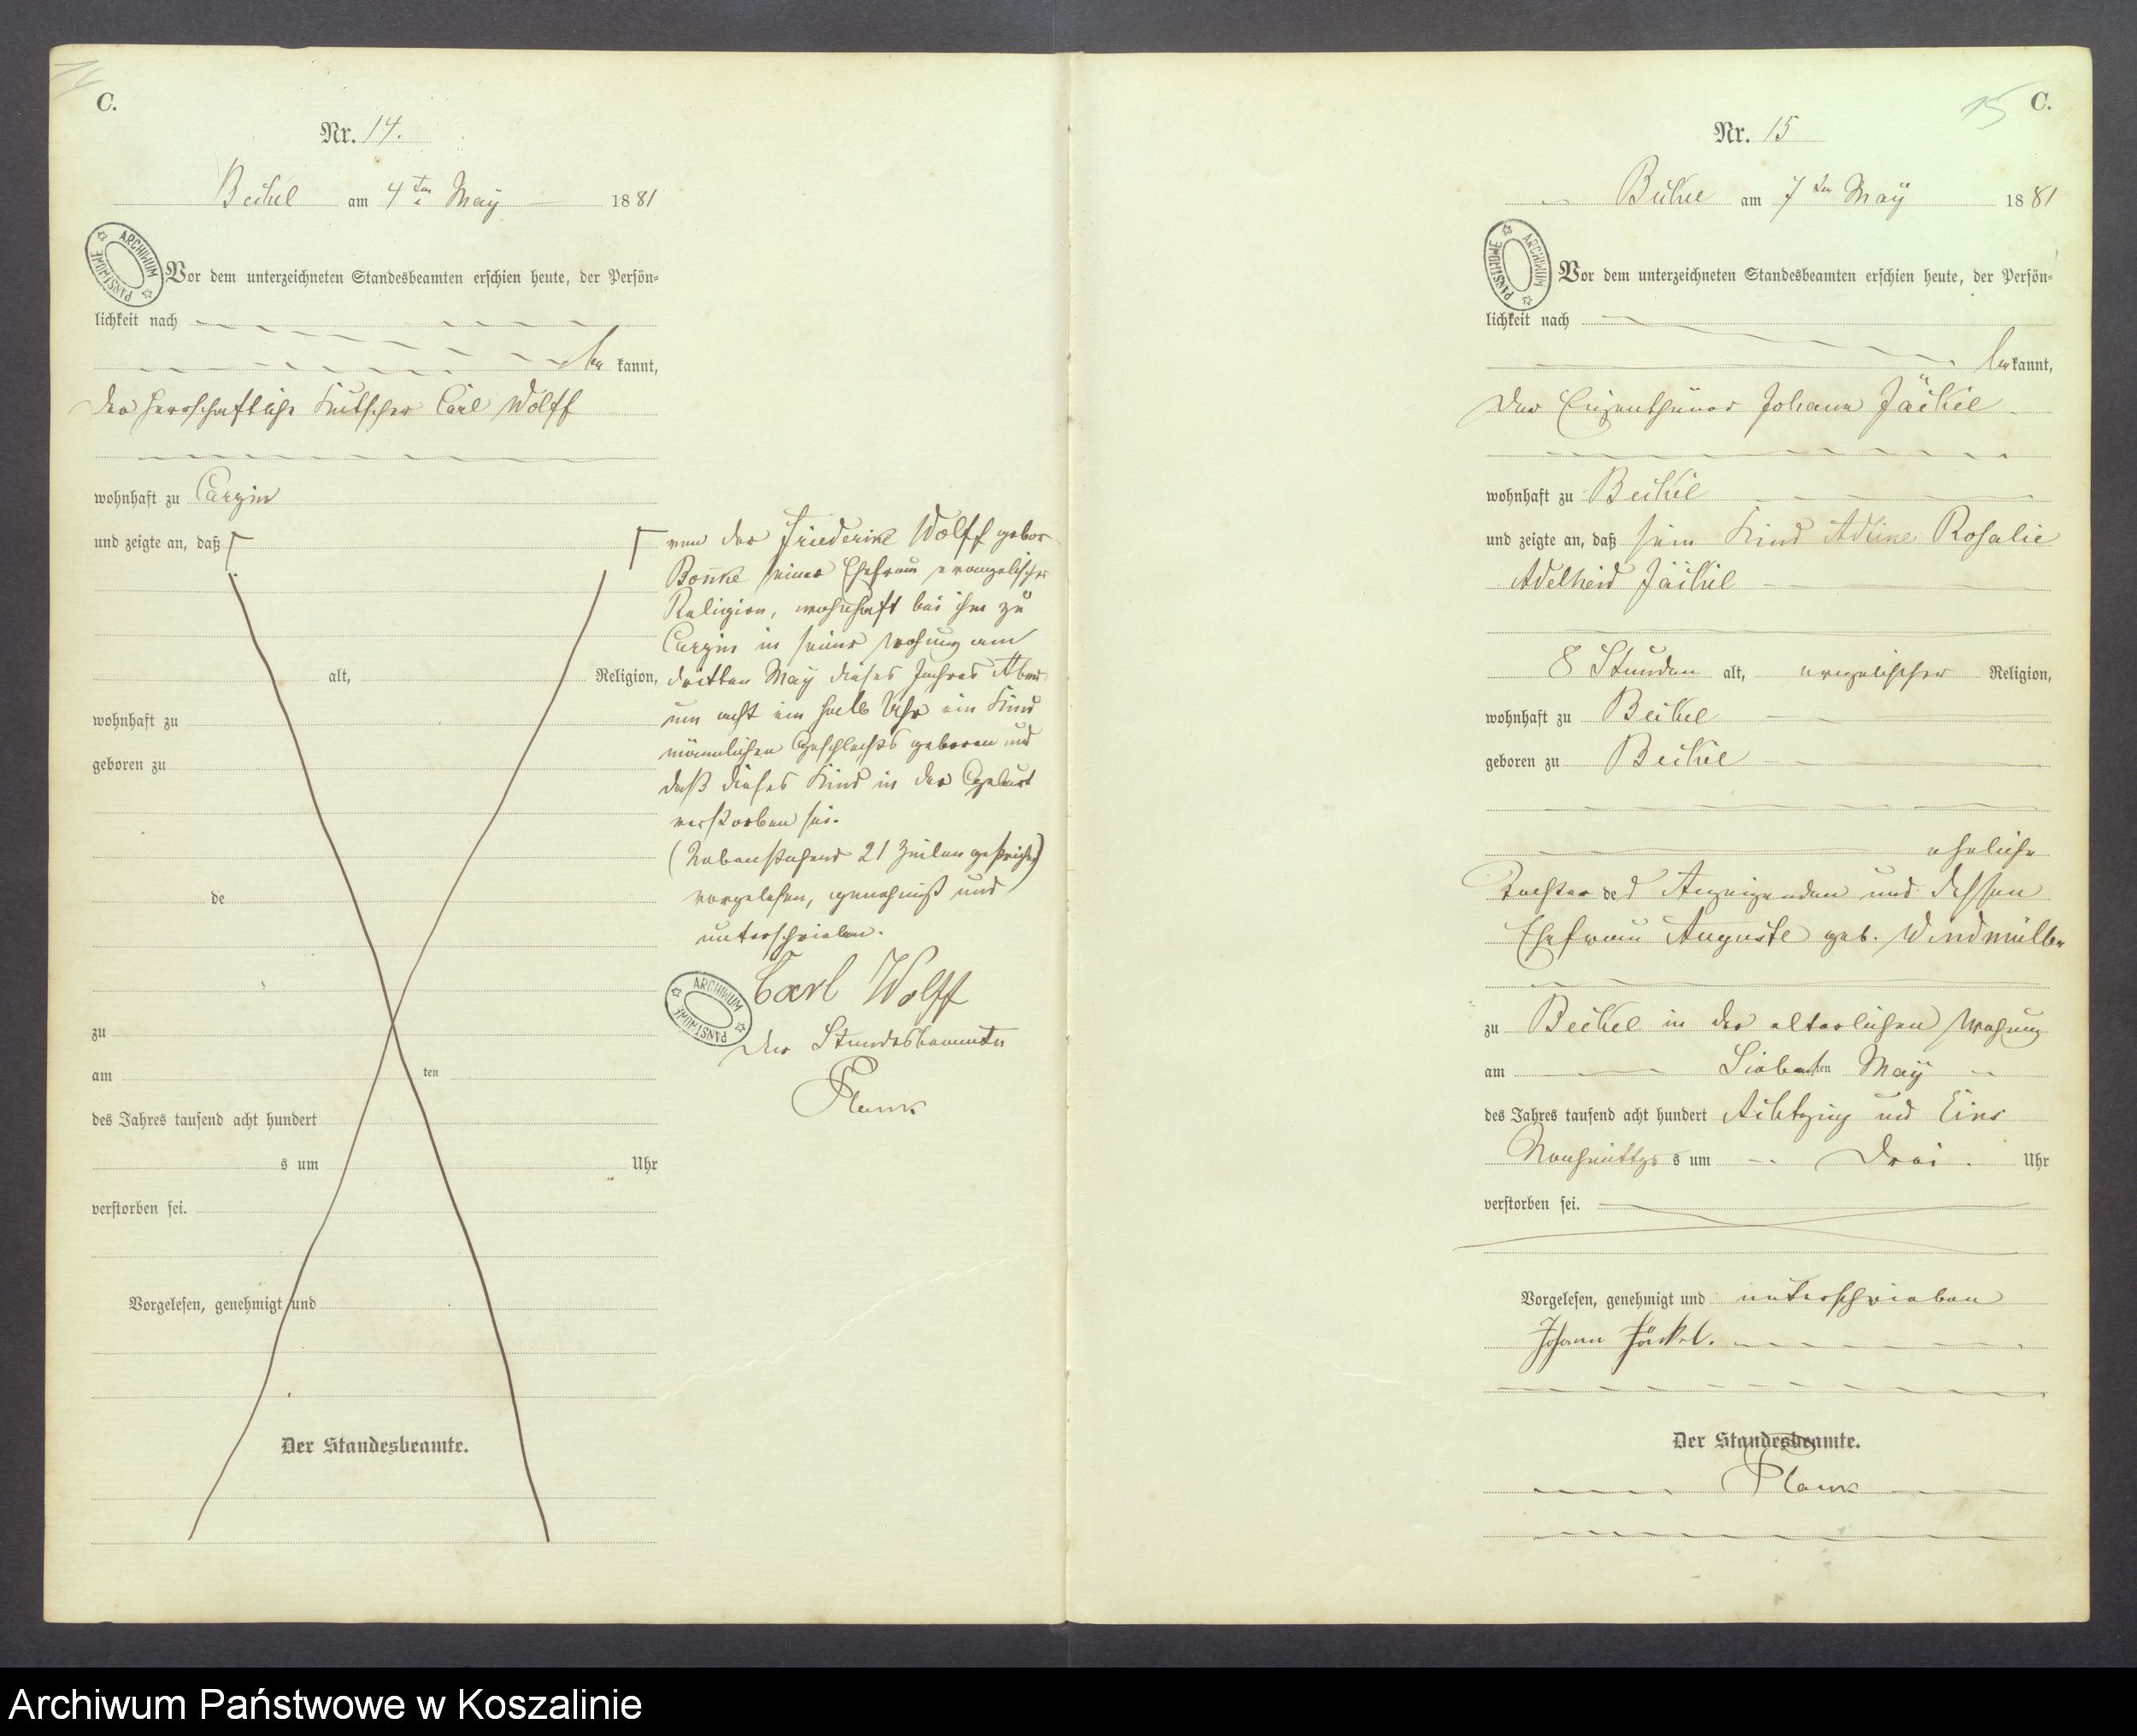 C.
Nr. 14.
Beckel am 4ten May 1881
ARCHIWUM PAŃSTWOWE
Vor dem unterzeichneten Standesbeamten erschien heute, der Persön=
lichkeit nach
be kannt,
der herrschaftliche Kutscher Carl Wolff
wohnhaft zu Carzin
und zeigte an, daß
alt, Religion,
wohnhaft zu
geboren zu
de
zu
am ten
des Jahres tausend acht hundert
s um Uhr
verstorben sei.
Vorgelesen, genehmigt und
Der Standesbeamte.
von der Friederike Wolff gebor
Bonke seiner Ehefrau evangelischer
Religion, wohnhaft bei ihm zu
Carzin in seiner Wohung am
dritten May dieses Jahres Abend
um acht ein halb Uhr ein Kind
männlichen Geschlechts geboren und
daß dieses Kind in der Geburt
verstorben sei.
(Nebenstehend 21 Zeilen gestrichen)
vorgelesen, genehmigt und
unterschrieben.
Carl Wolff
ARCHIWUM PAŃSTWOWE
Der Standesbeamte
Plank
15 C.
Nr. 15
Beckel am 7ten May 1881
ARCHIWUM PAŃSTWOWE
Vor dem unterzeichneten Standesbeamten erschien heute, der Persön=
lichkeit nach
be kannt,
der Eigenthümer Johann Jäckel
wohnhaft zu Beckel
und zeigte an, daß sein Kind Adline Rosalie
Adelheid Jäckel
8 Stunden alt, evangelischer Religion,
wohnhaft zu Beckel
geboren zu Beckel
eheliche
Tochter des Anzeigenden und dessen
Ehefrau Auguste geb. Windmüller
zu Beckel in der elterlichen Wohung
am Siebenten May
des Jahres tausend acht hundert Achtzig und Eins
Nachmittags um Drei Uhr
verstorben sei.
Vorgelesen, genehmigt und unterschrieben
Johann Jäckel.
Der Standesbeamte.
Plank
Archiwum Państwowe w Koszalinie